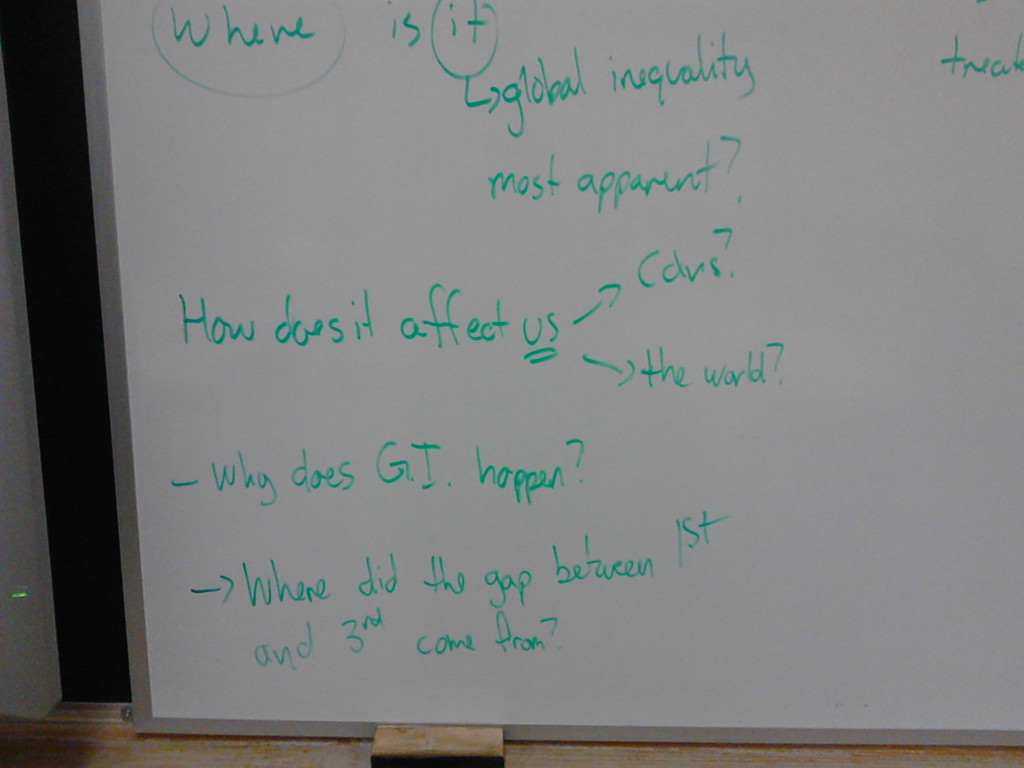 Where is it
↳ global inequality
most apparent?
Cdns?
How does it affect us
→ the world?
- Why does G.I. happen?
→ Where did the gap between 1st
and 3rd come from?